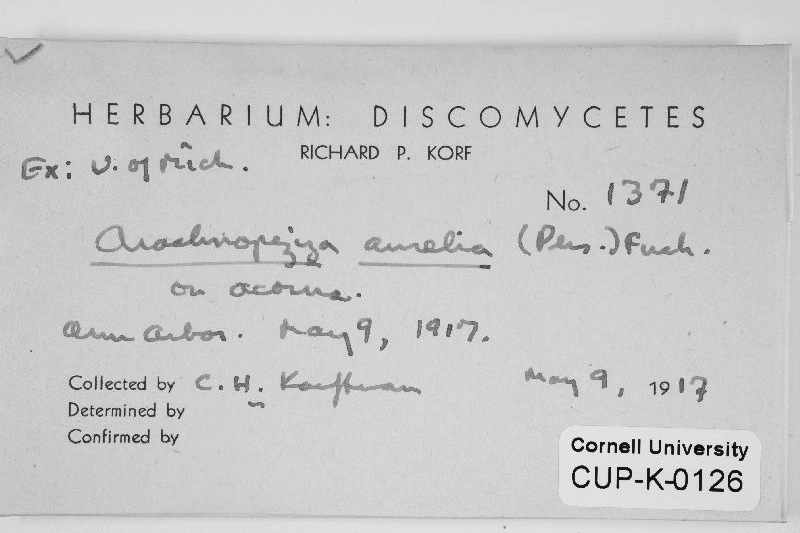 HERBARIUM: DISCOMYCETES
RICHARD P. KORF
Ex: U. of Mich.
No. 1371
Arachnopeziza aurelia (Pers.) Fuck.
on acorns.
Ann Arbor. May 9, 1917.
Collected by C. H. Kauffman May 9, 1917
Determined by
Confirmed by
Cornell University
CUP-K-0126